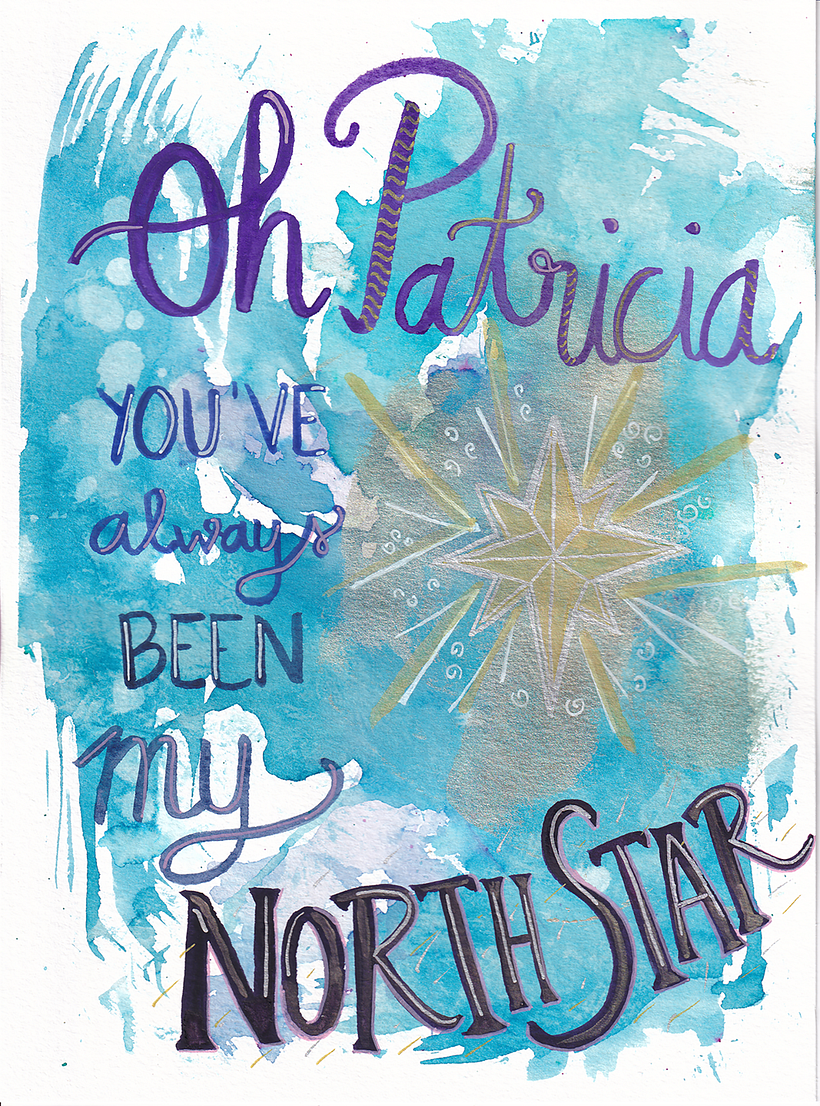 Oh Patricia
YOU'VE
always
BEEN
my
NORTH STAR